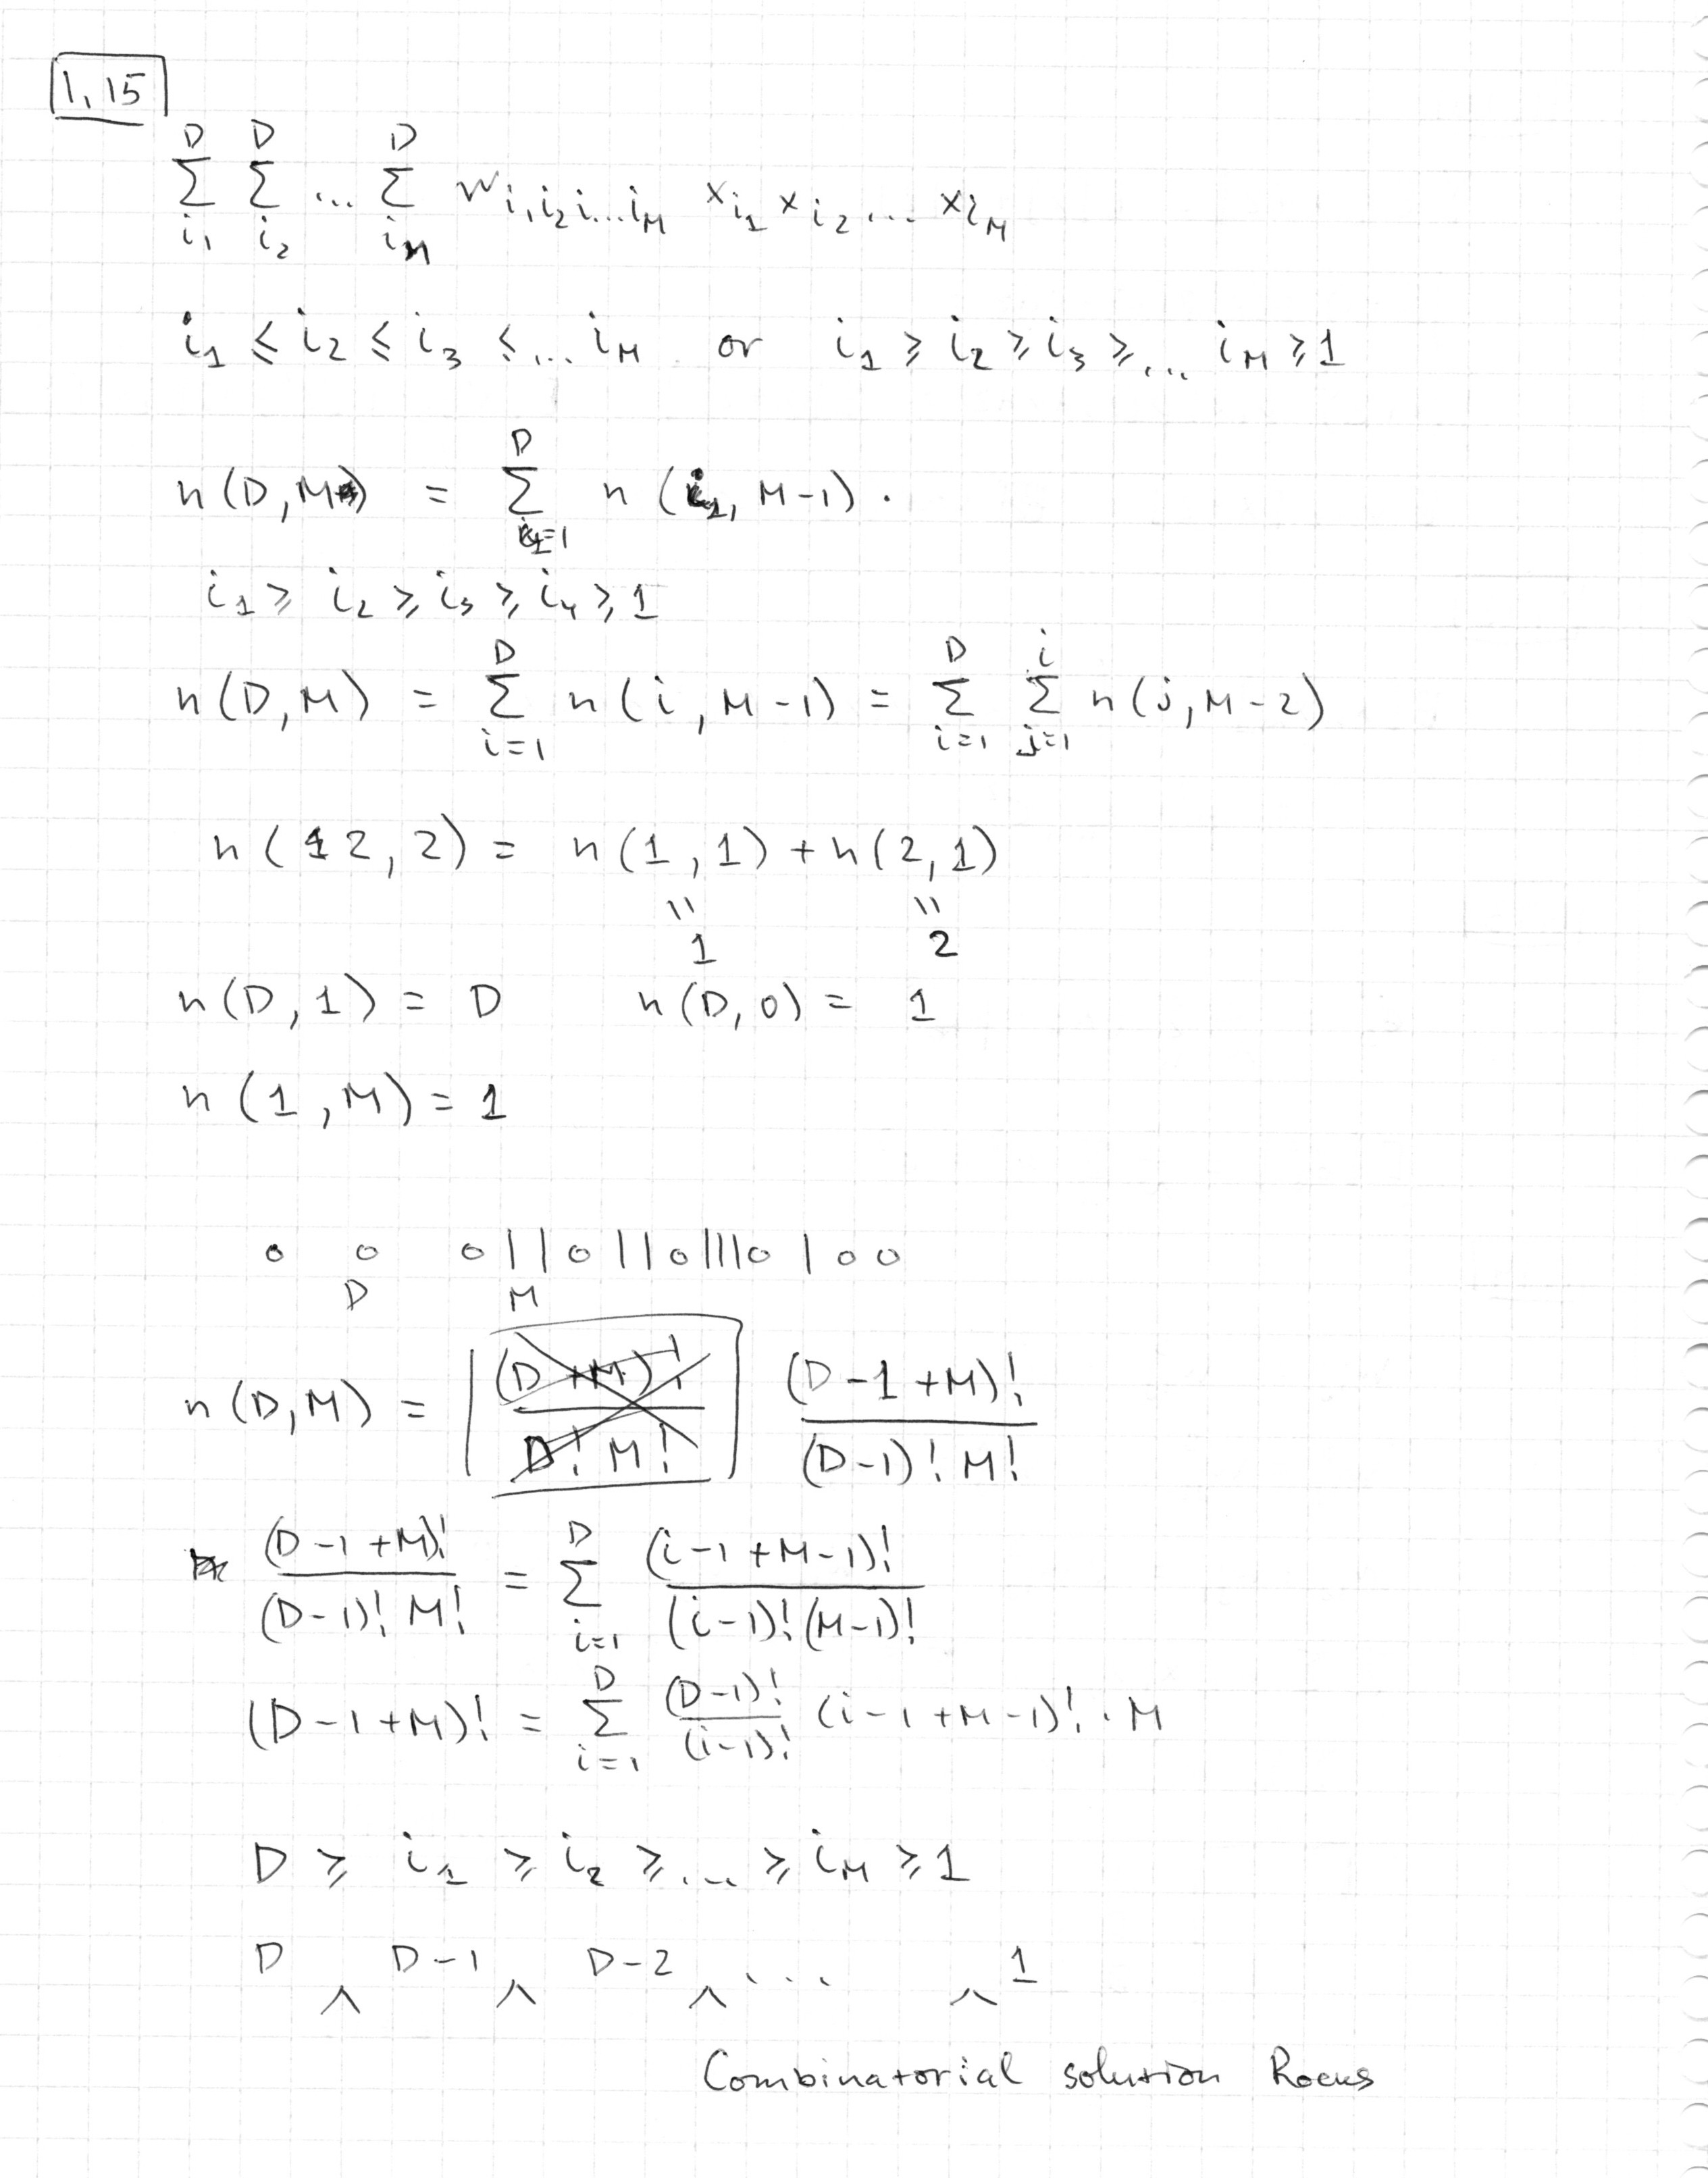 1.15
D D D
∑ ∑ ... ∑ w i₁i₂i...i_M x_{i₁} x_{i₂} ... x_{i_M}
i₁ i₂ i_M
i₁ ≤ i₂ ≤ i₃ ≤ ... i_M or i₁ ≥ i₂ ≥ i₃ ≥ ... i_M ≥ 1
n(D,M) = ∑_{i₁=1}^{D} n(i₁, M-1).
i₁ ≥ i₂ ≥ i₃ ≥ i₄ ≥ 1
n(D,M) = ∑_{i=1}^{D} n(i, M-1) = ∑_{i=1}^{D} ∑_{j=1}^{i} n(j, M-2)
n(2, 2) = n(1, 1) + n(2, 1)
= =
1 2
n(D, 1) = D n(D, 0) = 1
n(1, M) = 1
o o o||o||o|||o|oo
D M
n(D,M) = (D+M)! / D! M! (D-1+M)! / (D-1)! M!
(D-1+M)! / (D-1)! M! = ∑_{i=1}^{D} (i-1+M-1)! / (i-1)!(M-1)!
(D-1+M)! = ∑_{i=1}^{D} (D-1)! / (i-1)! (i-1+M-1)! · M
D ≥ i₁ ≥ i₂ ≥ ... ≥ i_M ≥ 1
D ∧ D-1 ∧ D-2 ∧ ... ∧ 1
Combinatorial solution Rocks